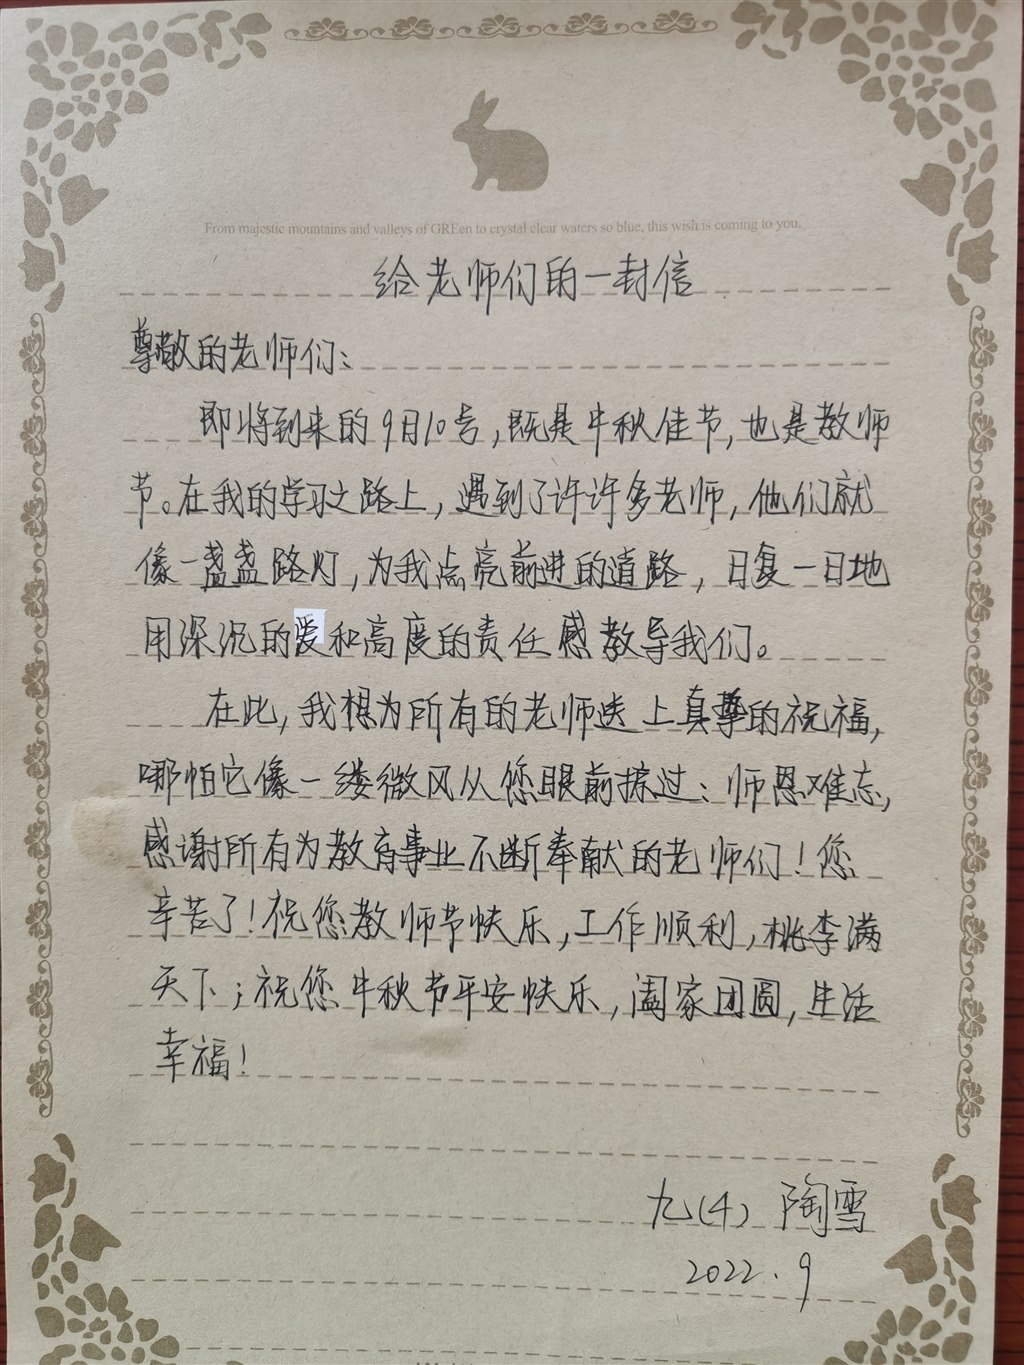 From majestic mountains and valleys of GREen to crystal clear waters so blue, this wish is coming to you.
给老师们的一封信
尊敬的老师们：
即将到来的9月10号，既是中秋佳节，也是教师
节。在我的学习之路上，遇到了许许多老师，他们就
像一盏盏路灯，为我点亮前进的道路，日复一日地
用深沉的爱和高度的责任感教导我们。
在此，我想为所有的老师送上真挚的祝福，
哪怕它像一缕微风从您眼前掠过：师恩难忘，
感谢所有为教育事业不断奉献的老师们！您
辛苦了！祝您教师节快乐，工作顺利，桃李满
天下；祝您中秋节平安快乐，阖家团圆，生活
幸福！
九（4） 陶雪
2022.9